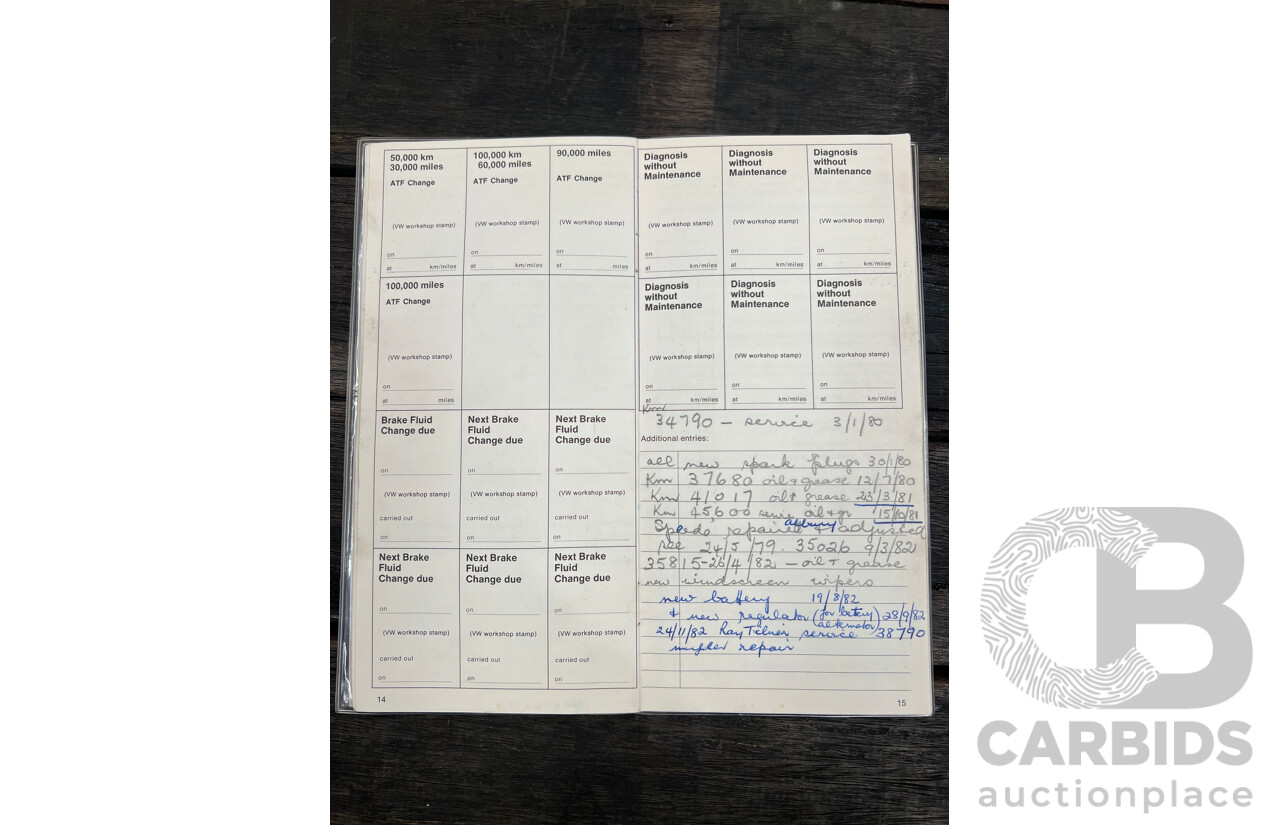 50,000 km
30,000 miles
ATF Change
(VW workshop stamp)
on
at km/miles
100,000 km
60,000 miles
ATF Change
(VW workshop stamp)
on
at km/miles
90,000 miles
ATF Change
(VW workshop stamp)
on
at miles
100,000 miles
ATF Change
(VW workshop stamp)
on
at miles
Brake Fluid
Change due
on
(VW workshop stamp)
carried out
on
Next Brake
Fluid
Change due
on
(VW workshop stamp)
carried out
on
Next Brake
Fluid
Change due
on
(VW workshop stamp)
carried out
on
Next Brake
Fluid
Change due
on
(VW workshop stamp)
carried out
on
Next Brake
Fluid
Change due
on
(VW workshop stamp)
carried out
on
Next Brake
Fluid
Change due
on
(VW workshop stamp)
carried out
on
14
Diagnosis
without
Maintenance
(VW workshop stamp)
on
at km/miles
Diagnosis
without
Maintenance
(VW workshop stamp)
on
at km/miles
Diagnosis
without
Maintenance
(VW workshop stamp)
on
at km/miles
Diagnosis
without
Maintenance
(VW workshop stamp)
on
at km/miles
Diagnosis
without
Maintenance
(VW workshop stamp)
on
at km/miles
Diagnosis
without
Maintenance
(VW workshop stamp)
on
at km/miles
34790 - service 3/1/80
Additional entries:
all new spark plugs 30/1/80
Km 37680 oil + grease 12/7/80
Km 41017 oil + grease 23/3/81
Km 45600 oil + gr 15/10/81
Speedo repaired + adjusted
24/5/79. 35026 9/3/82
35815 - 26/4/82 - oil + grease
new windscreen wipers
new battery 19/8/82
+ new regulator (for battery 28/9/82
alternator)
24/11/82 Ray service 38790
muffler repair
15
CB
CARBIDS
auctionplace